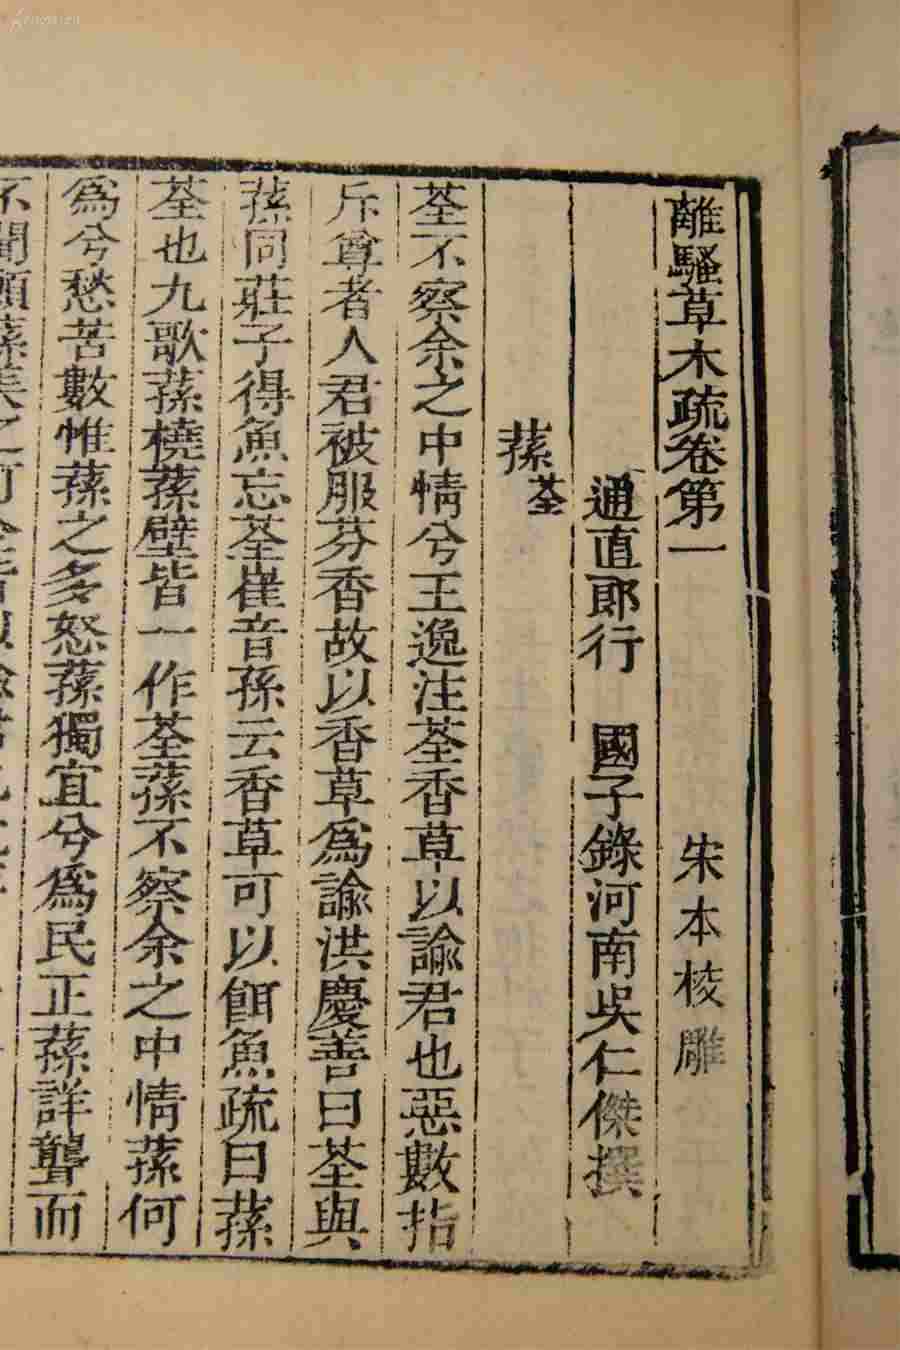 離騷草木疏卷第一 宋本校雕
通直郎行 國子錄河南吳仁傑撰
蓀荃
荃不察余之中情兮王逸注荃香草以諭君也惡數指
斥尊者人君被服芬香故以香草爲諭洪慶善曰荃與
蓀同莊子得魚忘荃崔音孫云香草可以餌魚疏曰蓀
荃也九歌蓀橈蓀壁皆一作荃蓀不察余之中情蓀何
爲兮愁苦數惟蓀之多怒蓀獨宜兮爲民正蓀詳聾而
不聞願蓀美之可